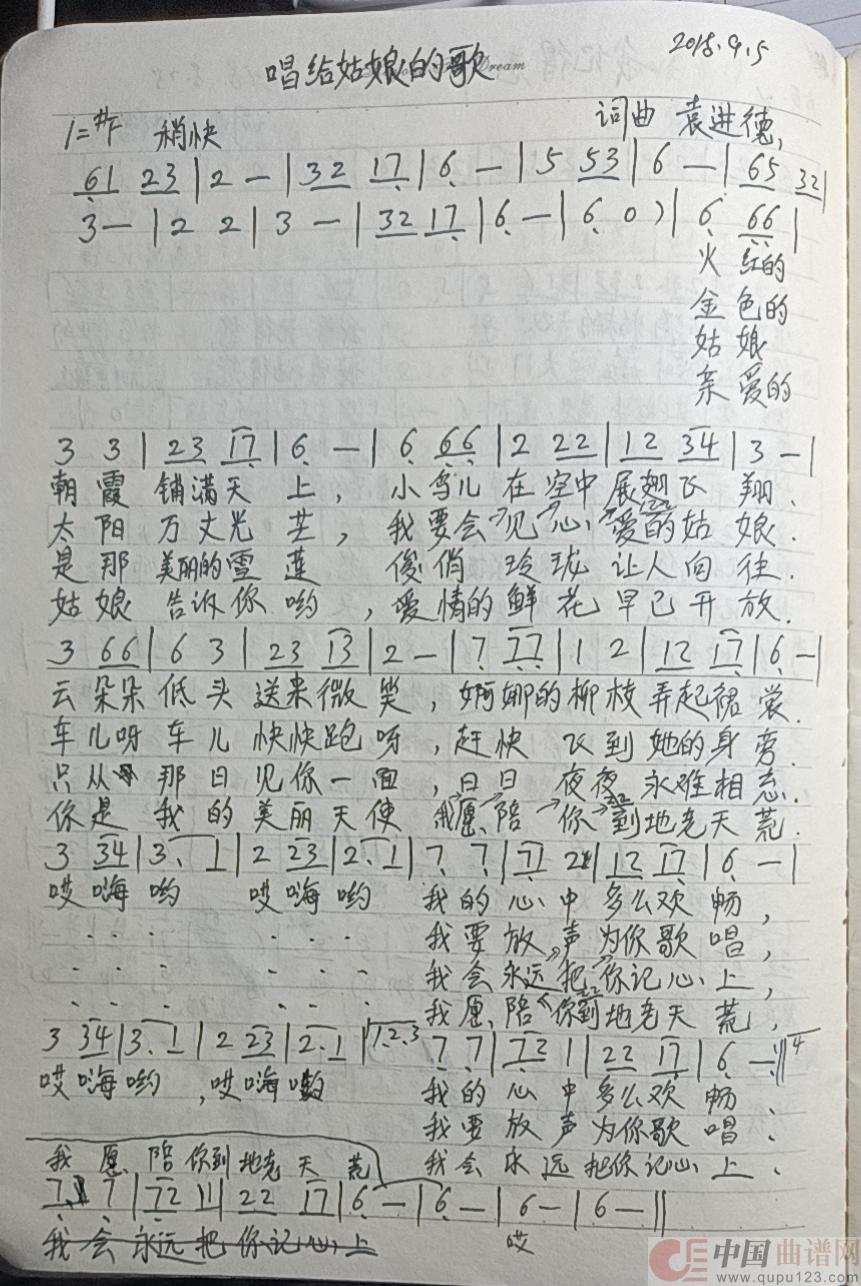 2018.9.5
唱给姑娘的歌
Dream
1=#F 稍快 词曲 袁进德
61 23|2 —|32 17|6 —|5 53|6 —|65 32|
3—|2 2|3 —|32 17|6—|6 0)|6 66|
火 红的
金 色的
姑 娘
亲 爱的
3 3|23 17|6 —|6 66|2 22|12 34|3 —|
朝 霞 铺满天 上, 小鸟儿 在空中展翅飞 翔.
太 阳 万丈光 芒, 我要会见心爱的姑 娘.
是 那 美丽的雪 莲 俊俏 玲珑 让人向 往.
姑 娘 告诉你 哟, 爱情的鲜花早已开放.
3 66|6 3|23 13|2 —|7 77|1 2|12 17|6 —|
云 朵朵 低 头 送来微 笑, 婀娜的柳枝弄起裙裳.
车儿呀 车儿 快快跑 呀, 赶快 飞到她的身旁.
只从 那日见你一面, 日日 夜夜 永难相忘.
你是 我的美丽天使 我愿陪 你到地老天荒.
3 34|3. 1|2 23|2. 1|7 7|71 2|12 17|6 —|
哎 嗨 哟 哎 嗨 哟 我的 心 中 多么欢 畅,
. . . . . . 我要放声为你歌唱,
. . . . . . 我会永远把你记心上,
. . . . . . 我愿陪你到地老天荒,
3 34|3. 1|2 23|2. 1|1.2.3 7 7|72 1|22 17|6 —:‖4
哎嗨哟, 哎嗨 我的 心 中 多么欢 畅.
我要放声为你歌唱.
我会永远把你记心上.
我 愿 陪你到地老天 荒
7 7|72 1|22 17|6 —|6 —|6 —|6 —‖
我会永远把你记心上 哎
中国曲谱网
www.qupu123.com